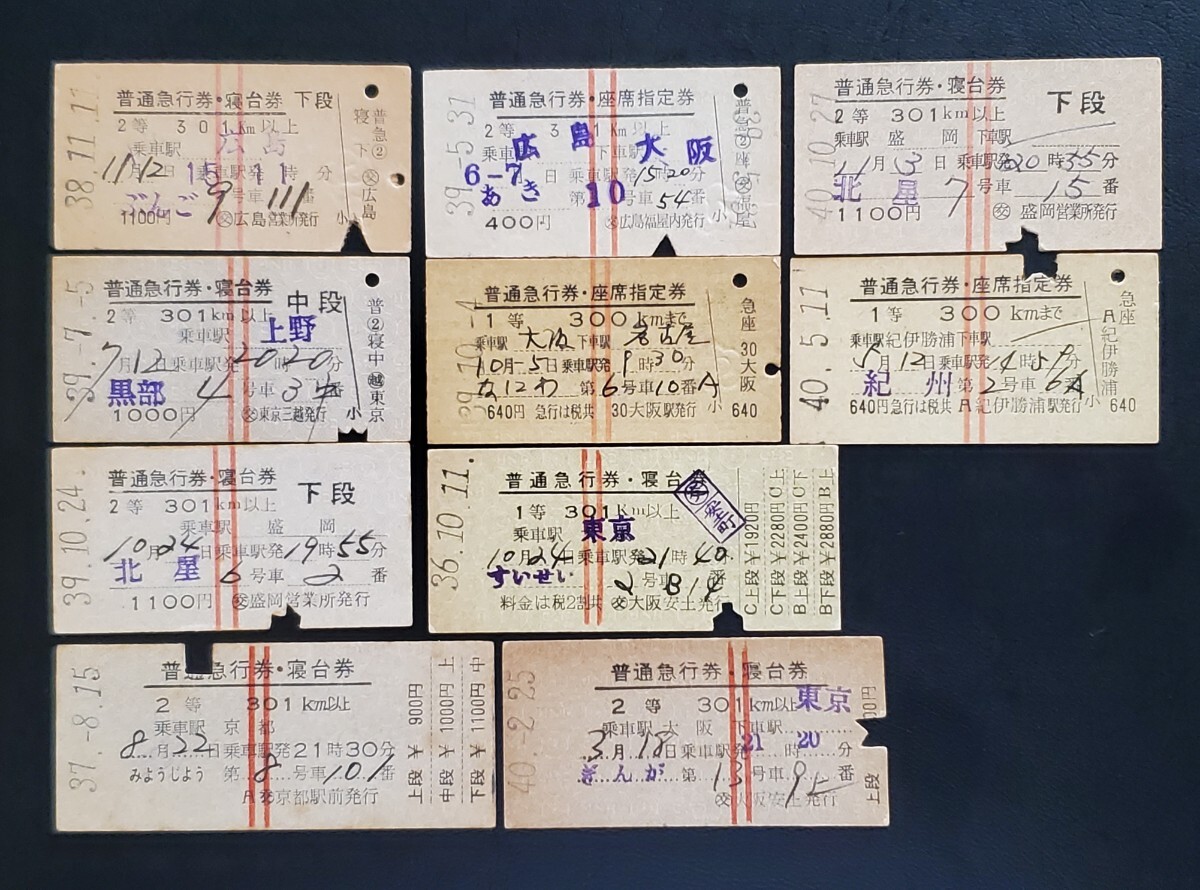 38.11.11
普通急行券・寝台券 下段
2等 301km以上
乗車駅 広島
11月12日 乗車駅発 15時11分
9号車 111番
1100円 ㊋広島営業所発行
小
普急②
寝下
広島
39.-5.31
普通急行券・座席指定券
2等
乗車駅 広島 下車駅 大阪
6-7 日 乗車駅発 15時20
あき 第10号車 54番
400円 広島福屋内発行
小
普急②座
福屋
40.10.27
普通急行券・寝台券
下段
2等 301km以上
乗車駅 盛岡 下車駅
11月3日 乗車駅発 20時35分
北星 7号車 15番
1100円 盛岡営業所発行
39.-7.-5
普通急行券・寝台券
中段
2等 301km以上
乗車駅 上野
7月12日乗車駅発2020分
黒部 4号車 3中
1000円 東京三越発行
小
普②寝中
東京
39.10.-4
普通急行券・座席指定券
1等 300kmまで
乗車駅 大阪 下車駅 名古屋
10月5日乗車駅発9時30分
第6号車10番A
640円 急行は税共 30大阪駅発行
小
急座
30
大阪
640
40.5.11
普通急行券・座席指定券
1等 300kmまで
乗車駅紀伊勝浦下車駅
5月12日乗車駅発14時59分
紀州 第2号車 6A
640円急行は税共 A紀伊勝浦駅発行
小
急座
A紀伊勝浦
640
39.10.24
普通急行券・寝台券
下段
2等 301km以上
乗車駅 盛岡
10月24日乗車駅発19時55分
北星 6号車 2番
1100円 盛岡営業所発行
36.10.11.
普通急行券・寝台券
1等 301km以上
乗車駅 東京
10月24日乗車駅発21時40分
すいせい 2号車 B14番
料金は税2割共 大阪安土発行
C上段￥1920円
C下段￥2280円C上
B上段￥2400円C下
B下段￥2880円B上
37.-8.15
普通急行券・寝台券
2等 301km以上
乗車駅 京都
8月22日乗車駅発21時30分
みようじよう 第8号車101番
A京都駅前発行
上段￥ 900円
中段￥1000円上
下段￥1100円中
40.-2.25
普通急行券・寝台券
2等 301km以上 東京
乗車駅 大阪 下車駅
3月18日乗車駅発21時20分
ぎんが 第13号車9上番
大阪安土発行
上段